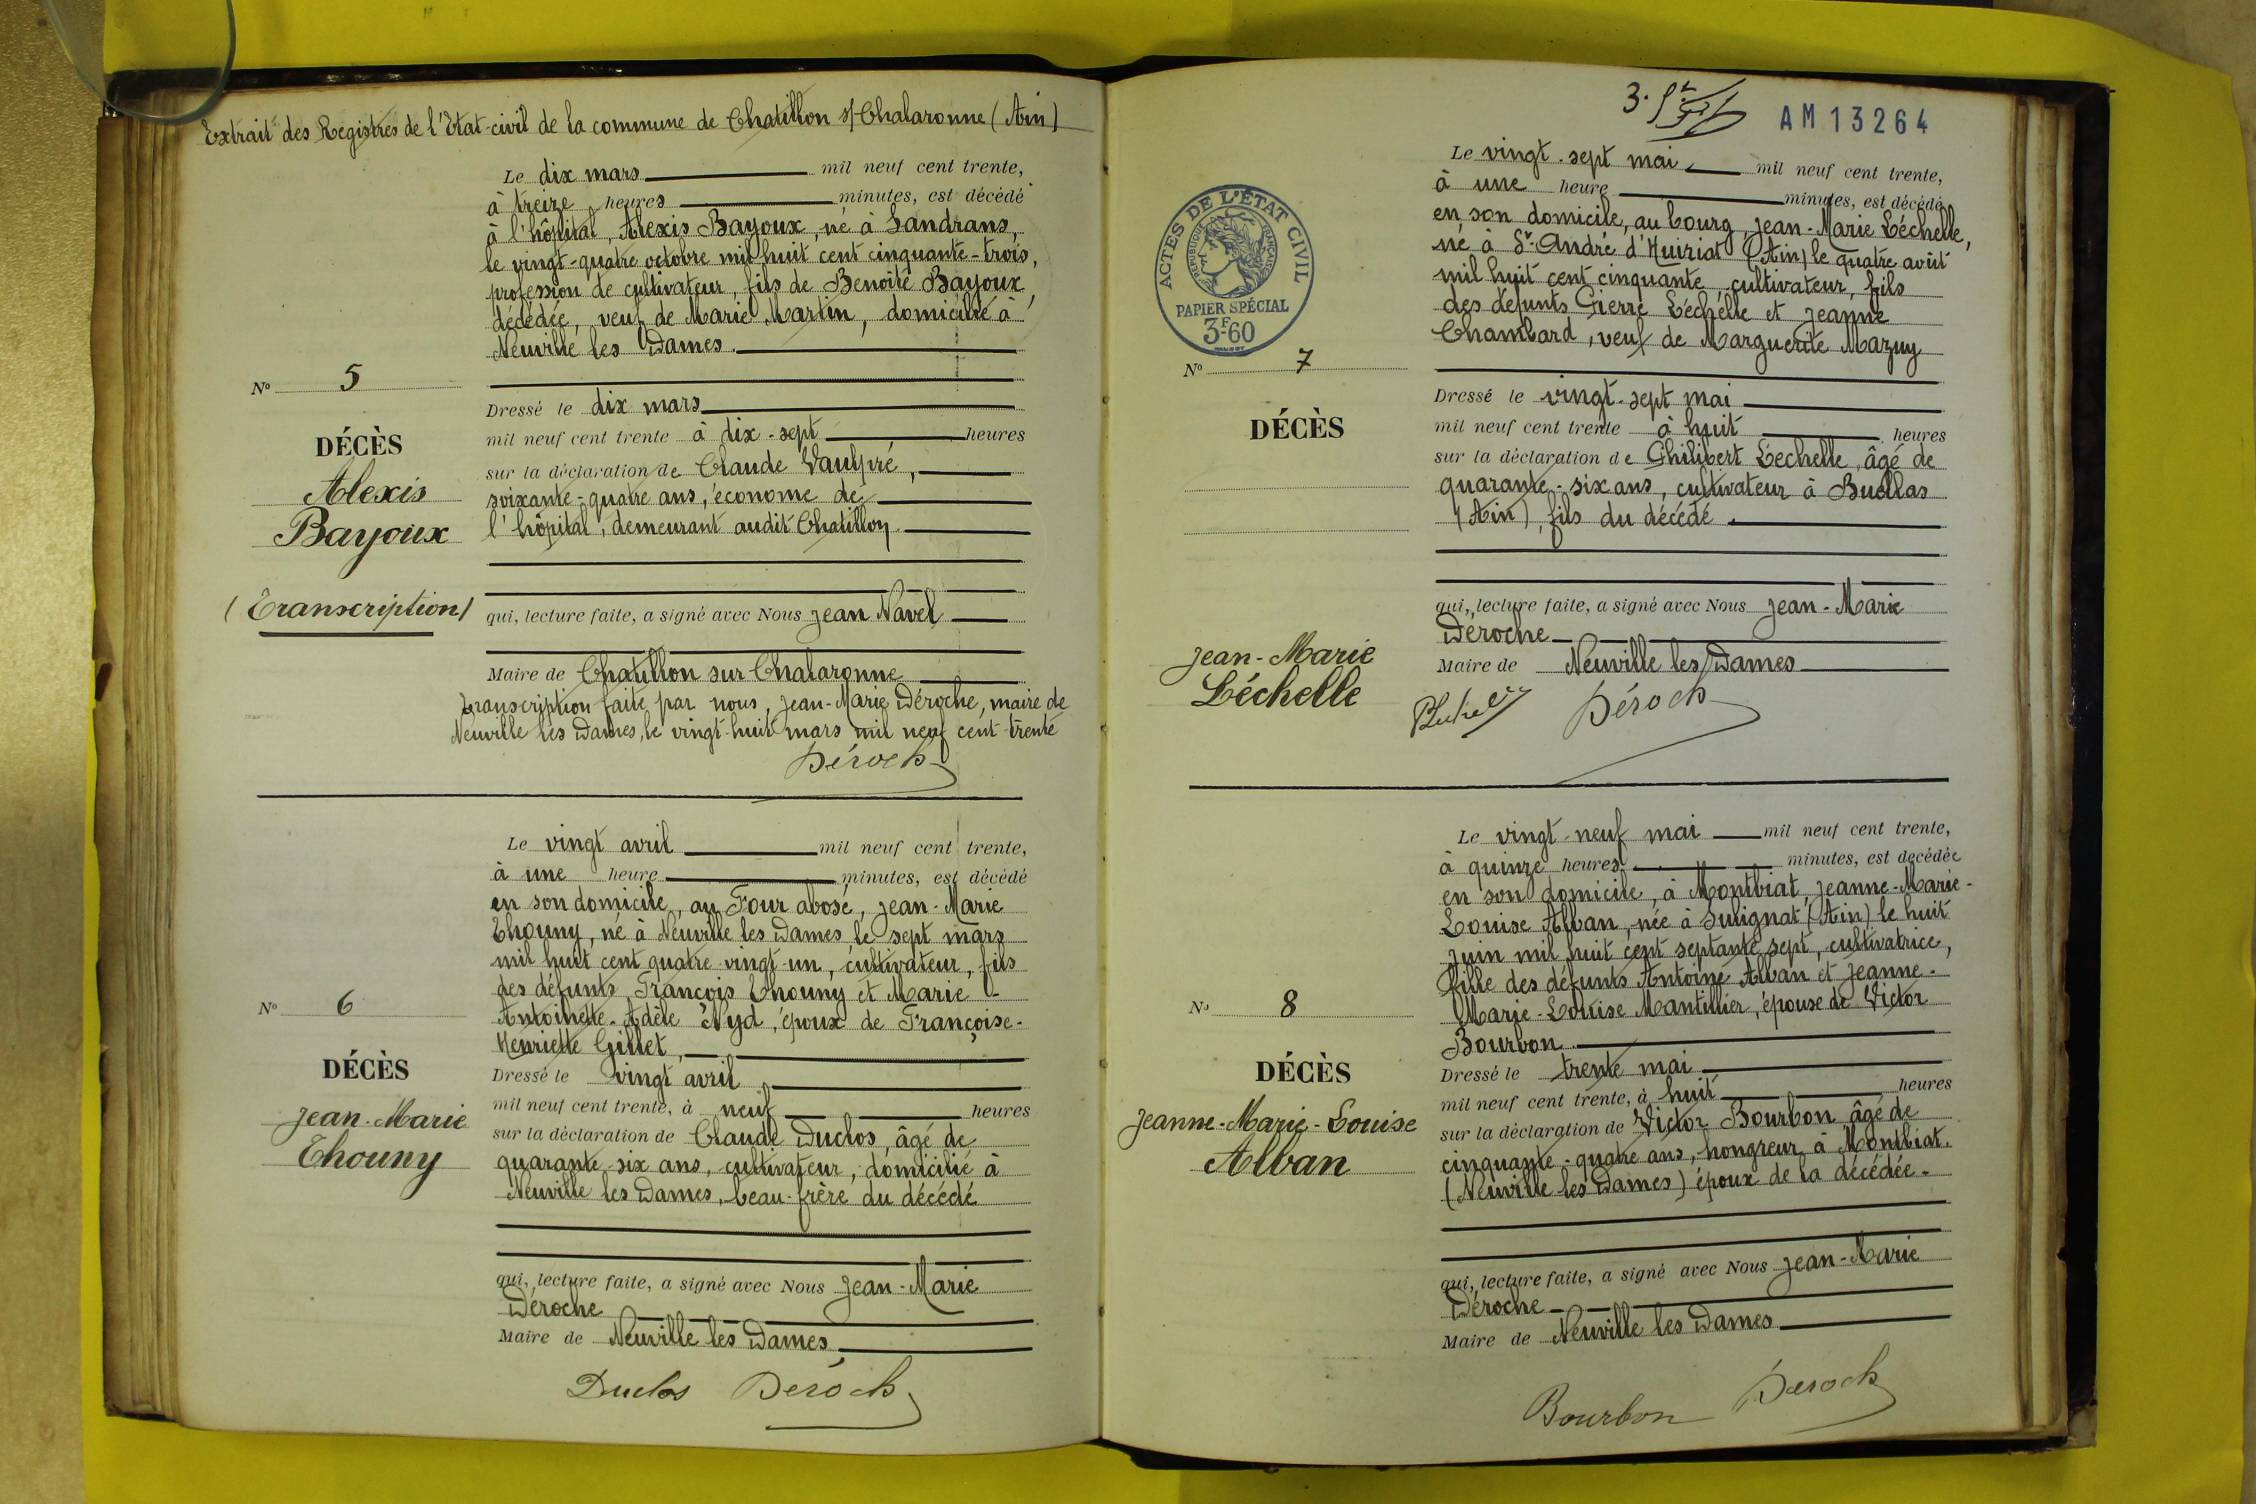 Extrait des Registres de l'Etat-civil de la commune de Chatillon s/Chalaronne (Ain)
Le dix mars mil neuf cent trente,
à treize heures minutes, est décédé
à l'hôpital, Alexis Bayoux, né à Sandrans,
le vingt-quatre octobre mil huit cent cinquante-trois,
profession de cultivateur, fils de Benoîte Bayoux,
décédée, veuf de Marie Martin, domicilié à
Neuville les Dames.
N° 5
DÉCÈS
Alexis
Bayoux
(Transcription)
Dressé le dix mars
mil neuf cent trente à dix-sept heures
sur la déclaration de Claude Vaulpré,
soixante-quatre ans, économe de
l'hôpital, demeurant audit Chatillon
qui, lecture faite, a signé avec Nous Jean Navel
Maire de Chatillon sur Chalaronne
Transcription faite par nous, Jean-Marie Déroche, maire de
Neuville les Dames, le vingt-huit mars mil neuf cent trente
Déroch
Le vingt avril mil neuf cent trente,
à une heure minutes, est décédé
en son domicile, au Four abosé, Jean-Marie
Thouny, né à Neuville les Dames, le sept mars
mil huit cent quatre-vingt-un, cultivateur, fils
des défunts François Thouny et Marie-
Antoinette-Adèle Nyd, époux de Françoise-
Henriette Gillet,
N° 6
DÉCÈS
Jean-Marie
Thouny
Dressé le vingt avril
mil neuf cent trente, à neuf heures
sur la déclaration de Claude Duclos, âgé de
quarante-six ans, cultivateur, domicilié à
Neuville les Dames, beau-frère du décédé
qui, lecture faite, a signé avec Nous Jean-Marie
Déroche
Maire de Neuville les Dames
Duclos Déroch
3.
AM13264
ACTES DE L'ÉTAT CIVIL
RÉPUBLIQUE FRANÇAISE
PAPIER SPÉCIAL
3F-60
Le vingt-sept mai mil neuf cent trente,
à une heure minutes, est décédé
en son domicile, au bourg, Jean-Marie Léchelle,
né à St-André d'Huiriat (Ain) le quatre août
mil huit cent cinquante, cultivateur, fils
des défunts Pierre Léchelle et Jeanne
Chambard, veuf de Marguerite Mazuy
N° 7
DÉCÈS
Jean-Marie
Léchelle
Dressé le vingt-sept mai
mil neuf cent trente à huit heures
sur la déclaration de Philibert Léchelle, âgé de
quarante-six ans, cultivateur à Buellas
(Ain), fils du décédé.
qui, lecture faite, a signé avec Nous Jean-Marie
Déroche
Maire de Neuville les Dames
Déroch
Le vingt-neuf mai mil neuf cent trente,
à quinze heures minutes, est décédée
en son domicile, à Montbiat, Jeanne-Marie-
Louise Alban, née à Sulignat (Ain) le huit
juin mil huit cent septante sept, cultivatrice,
fille des défunts Antoine Alban et Jeanne-
Marie-Louise Mantellier, épouse de Victor
Bourbon.
N° 8
DÉCÈS
Jeanne-Marie-Louise
Alban
Dressé le trente mai
mil neuf cent trente, à huit heures
sur la déclaration de Victor Bourbon, âgé de
cinquante-quatre ans, hongreur à Montbiat.
(Neuville les Dames) époux de la décédée.
qui, lecture faite, a signé avec Nous Jean-Marie
Déroche
Maire de Neuville les Dames
Bourbon Déroch